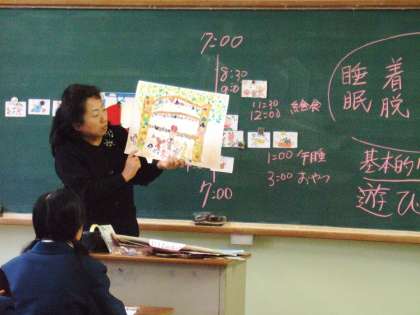 7:00
8:30
9:0
11:30 給食
12:00
1:00 午睡
3:00 おやつ
7:00
睡眠
着脱
基本的
遊び